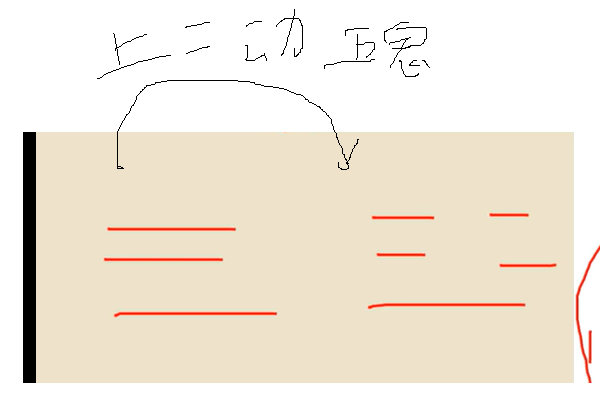 上二动 五鬼